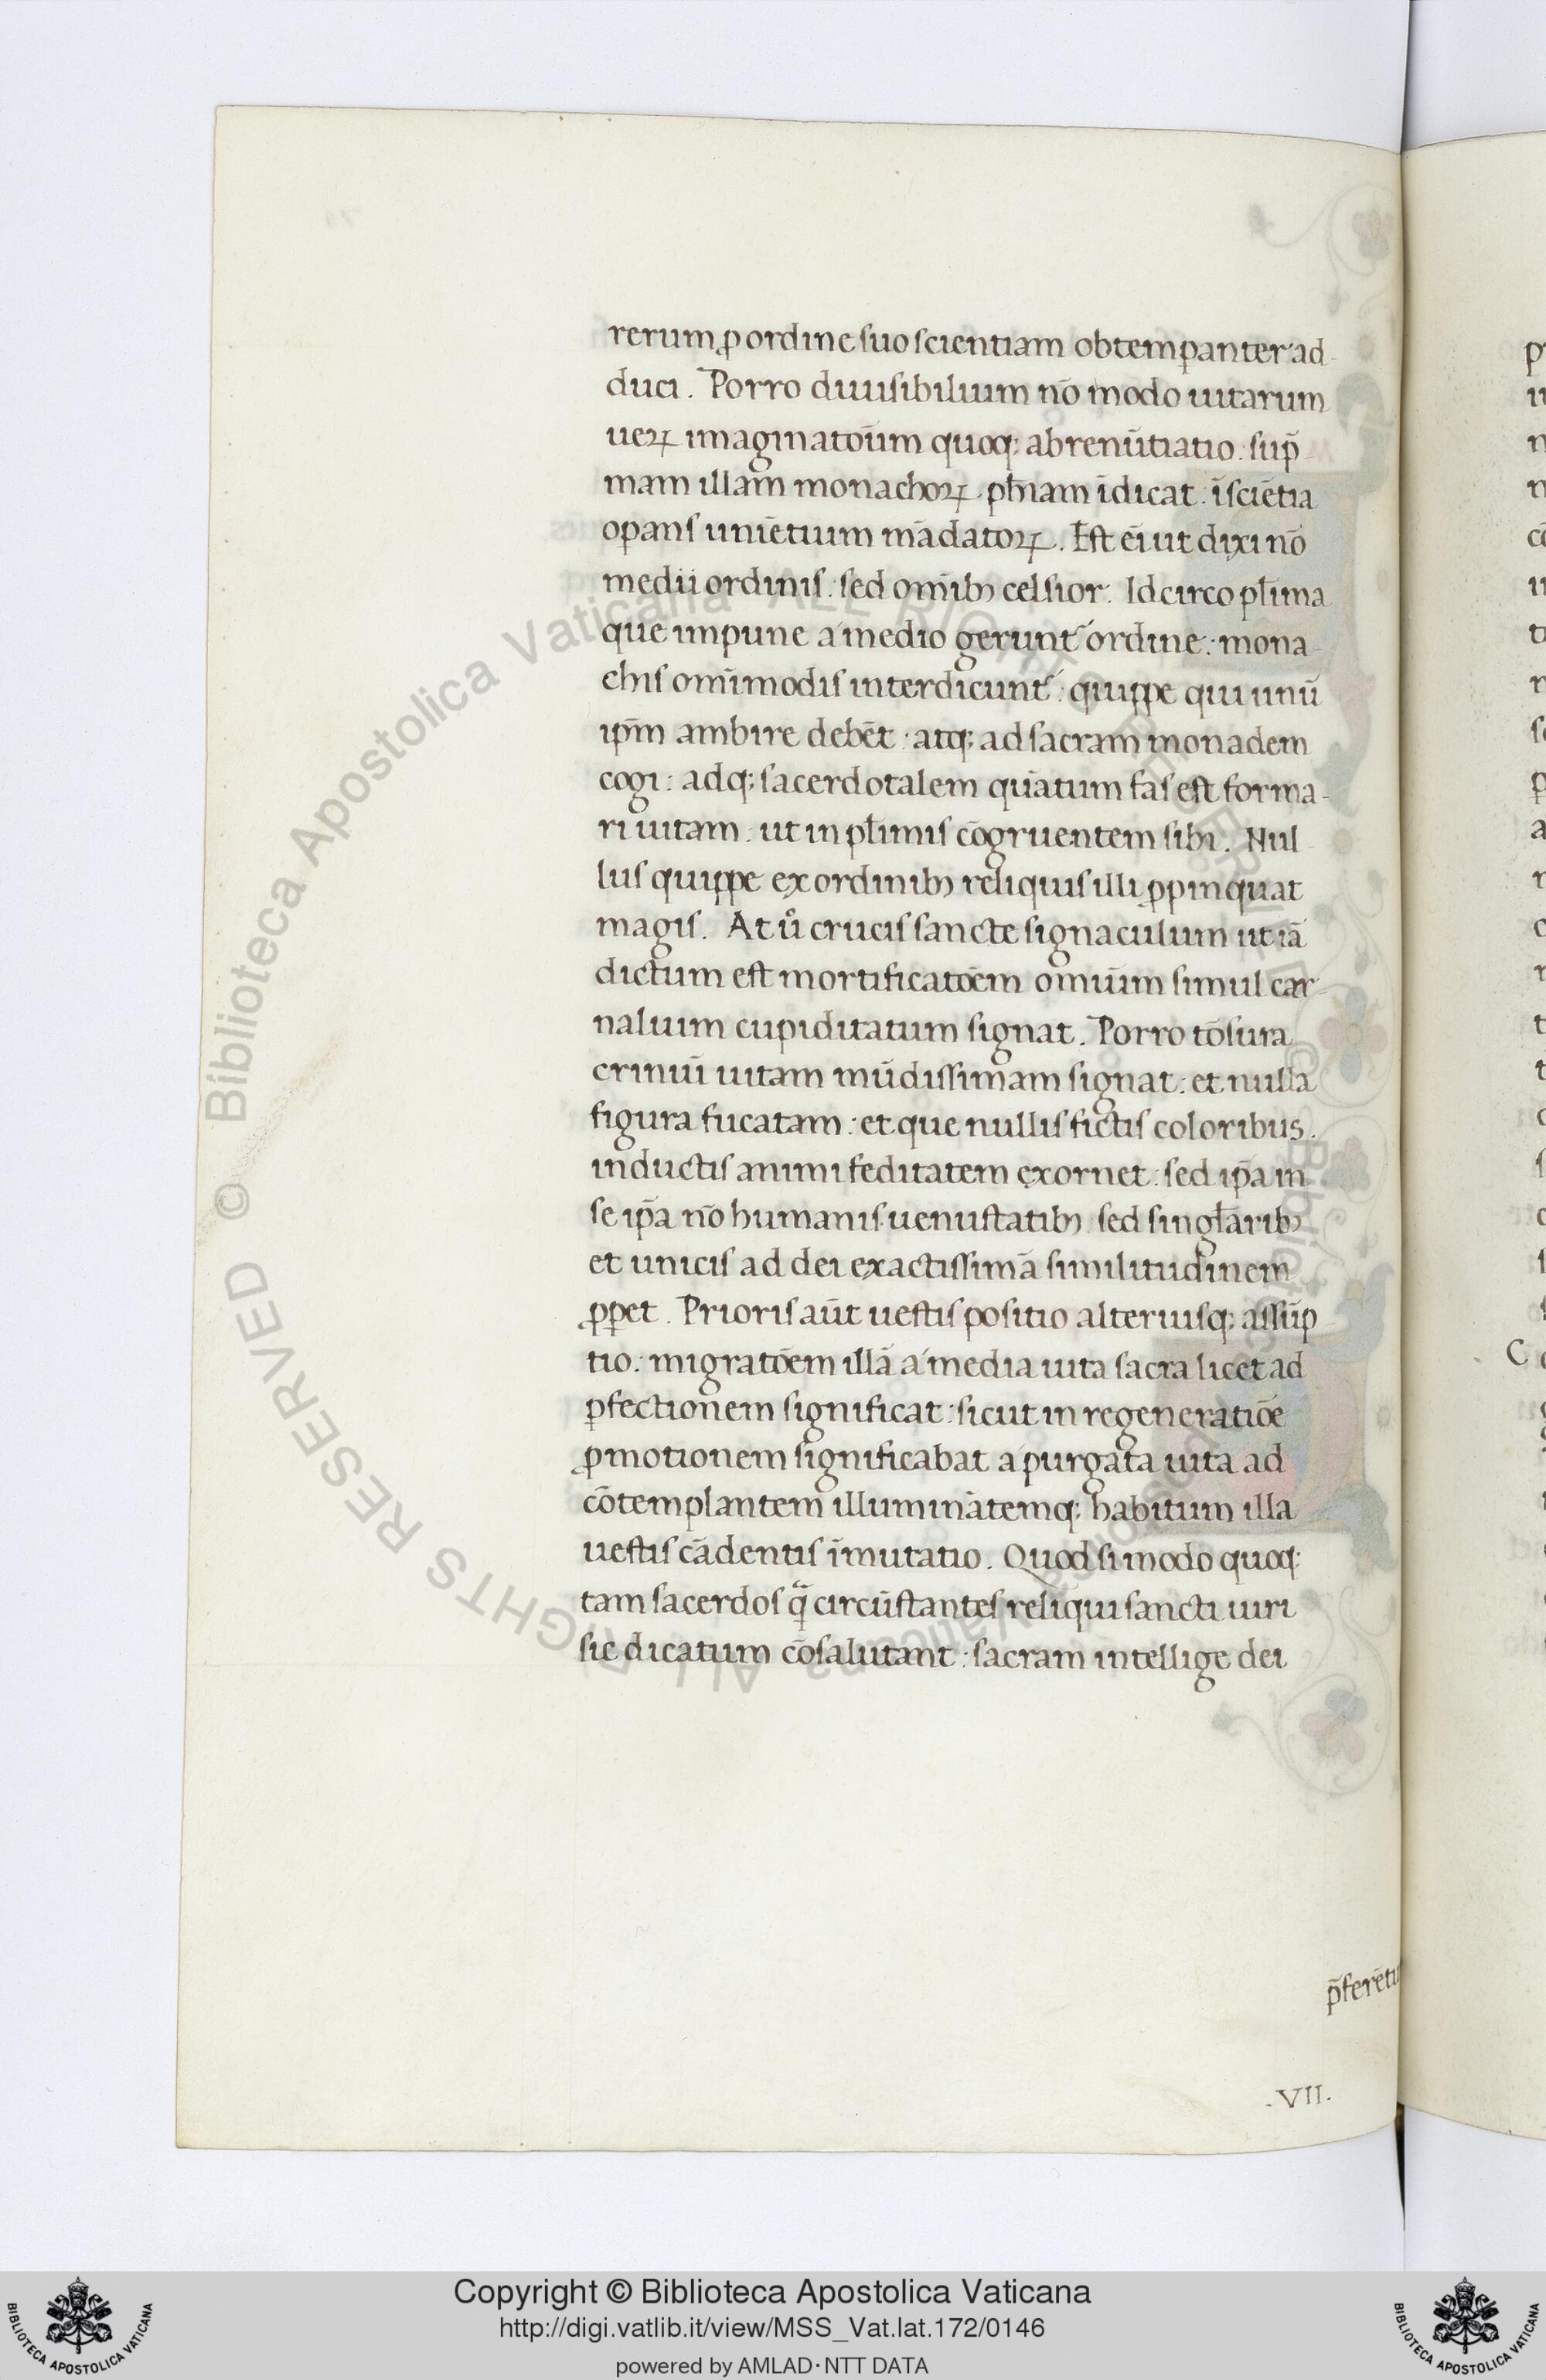 rerum ꝓ ordine suo scientiam obtemꝑanter ad-
duci. Porro diuisibilium nō modo uitarum
ueꝝ imaginatōium quoq; abrenūtiatio: sup̄-
mam illam monachoꝝ ph̄nam īdicat: ī sciētia
oꝑans uniētium mādatoꝝ. Est eī ut dixi nō
medii ordinis: sed omībꝫ celsior. Idcirco pl̄ima
que impune a medio gerunt᷑ ordine: mona-
chis omīmodis interdicunt᷑: quippe qui unū
ip̄m ambire debēt: atq; ad sacram monadem
cogi: adq; sacerdotalem quātum fas est forma-
ri uitam: ut in pl̄imis cōgruentem sibi. Nul-
lus quippe ex ordinibꝫ reliquis illi ꝓpinquat
magis. At uͦ crucis sancte signaculum ut iā
dictum est mortificatōem omīum simul car-
nalium cupiditatum signat. Porro tōsura
crinuī uitam mūdissimam signat: et nulla
figura fucatam: et que nullis fictis coloribus.
inductis animi feditatem exornet: sed ip̄a in
se ip̄a nō humanis uenustatibꝫ: sed singl̄aribꝫ
et unicis ad dei exactissimā similitudinem
ꝓꝑet. Prioris aūt uestis positio alteriusq; assūp-
tio: migratōem illā a media uita sacra licet ad
ꝑfectionem significat: sicut in regeneratiōe
ꝓmotionem significabat a purgata uita ad
cōtemplantem illuminātemq; habitum illa
uestis cādentis īmutatio. Quod si modo quoq;
tam sacerdos qᷓ circūstantes reliqui sancti uiri
sic dicatum cōsalutant: sacram intellige dei
.VII.
Copyright © Biblioteca Apostolica Vaticana
http://digi.vatlib.it/view/MSS_Vat.lat.172/0146
powered by AMLAD·NTT DATA
BIBLIOTECA APOSTOLICA VATICANA
BIBLIOTECA APOSTOLICA VATICANA
© Biblioteca Apostolica Vaticana ALL RIGHTS RESERVED